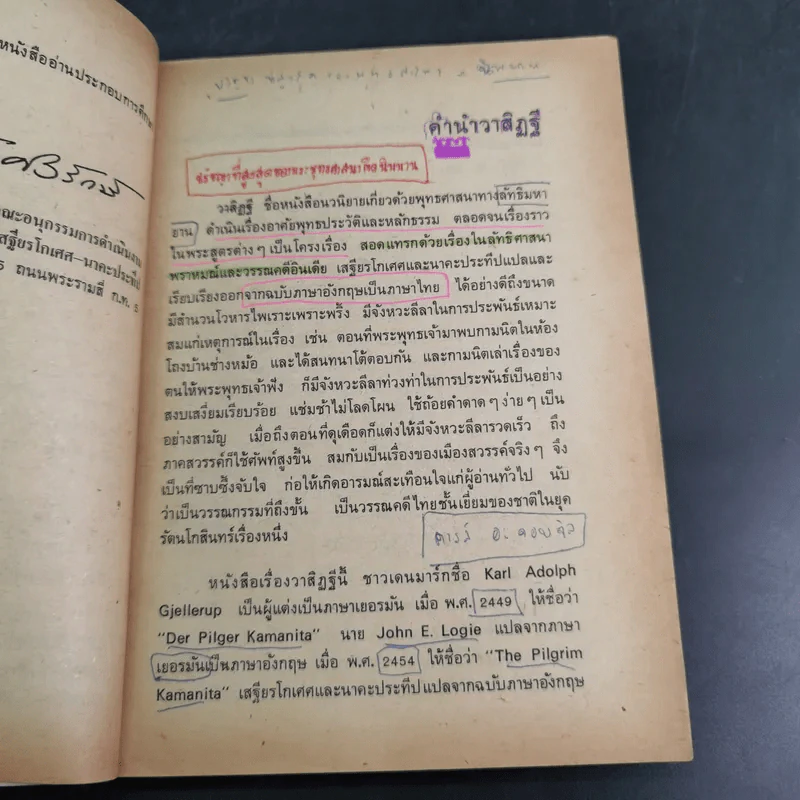 หนังสืออ่านประกอบการศึกษา
คณะอนุกรรมการดำเนินงาน
เสฐียรโกเศศ–นาคะประทีป
ถนนพระรามสี่ ก.ท. ๕
คำนำวาสิฏฐี
วาสิฏฐี ชื่อหนังสือนวนิยายเกี่ยวด้วยพุทธศาสนาทางลัทธิมหา
ยาน ดำเนินเรื่องอาศัยพุทธประวัติและหลักธรรม ตลอดจนเรื่องราว
ในพระสูตรต่าง ๆ เป็นโครงเรื่อง สอดแทรกด้วยเรื่องในลัทธิศาสนา
พราหมณ์และวรรณคดีอินเดีย เสฐียรโกเศศและนาคะประทีปแปลและ
เรียบเรียงออกจากฉบับภาษาอังกฤษเป็นภาษาไทย ได้อย่างดีถึงขนาด
มีสำนวนโวหารไพเราะเพราะพริ้ง มีจังหวะลีลาในการประพันธ์เหมาะ
สมแก่เหตุการณ์ในเรื่อง เช่น ตอนที่พระพุทธเจ้ามาพบกามนิตในห้อง
โถงบ้านช่างหม้อ และได้สนทนาโต้ตอบกัน และกามนิตเล่าเรื่องของ
ตนให้พระพุทธเจ้าฟัง ก็มีจังหวะลีลาท่วงท่าในการประพันธ์เป็นอย่าง
สงบเสงี่ยมเรียบร้อย แช่มช้าไม่โลดโผน ใช้ถ้อยคำดาด ๆ ง่าย ๆ เป็น
อย่างสามัญ เมื่อถึงตอนที่ดุเดือดก็แต่งให้มีจังหวะลีลารวดเร็ว ถึง
ภาคสวรรค์ก็ใช้ศัพท์สูงขึ้น สมกับเป็นเรื่องของเมืองสวรรค์จริง ๆ จึง
เป็นที่ซาบซึ้งจับใจ ก่อให้เกิดอารมณ์สะเทือนใจแก่ผู้อ่านทั่วไป นับ
ว่าเป็นวรรณกรรมที่ถึงขั้น เป็นวรรณคดีไทยชั้นเยี่ยมของชาติในยุค
รัตนโกสินทร์เรื่องหนึ่ง
หนังสือเรื่องวาสิฏฐีนี้ ชาวเดนมาร์กชื่อ Karl Adolph
Gjellerup เป็นผู้แต่งเป็นภาษาเยอรมัน เมื่อ พ.ศ. 2449 ให้ชื่อว่า
"Der Pilger Kamanita" นาย John E. Logie แปลจากภาษา
เยอรมันเป็นภาษาอังกฤษ เมื่อ พ.ศ. 2454 ให้ชื่อว่า "The Pilgrim
Kamanita" เสฐียรโกเศศและนาคะประทีปแปลจากฉบับภาษาอังกฤษ